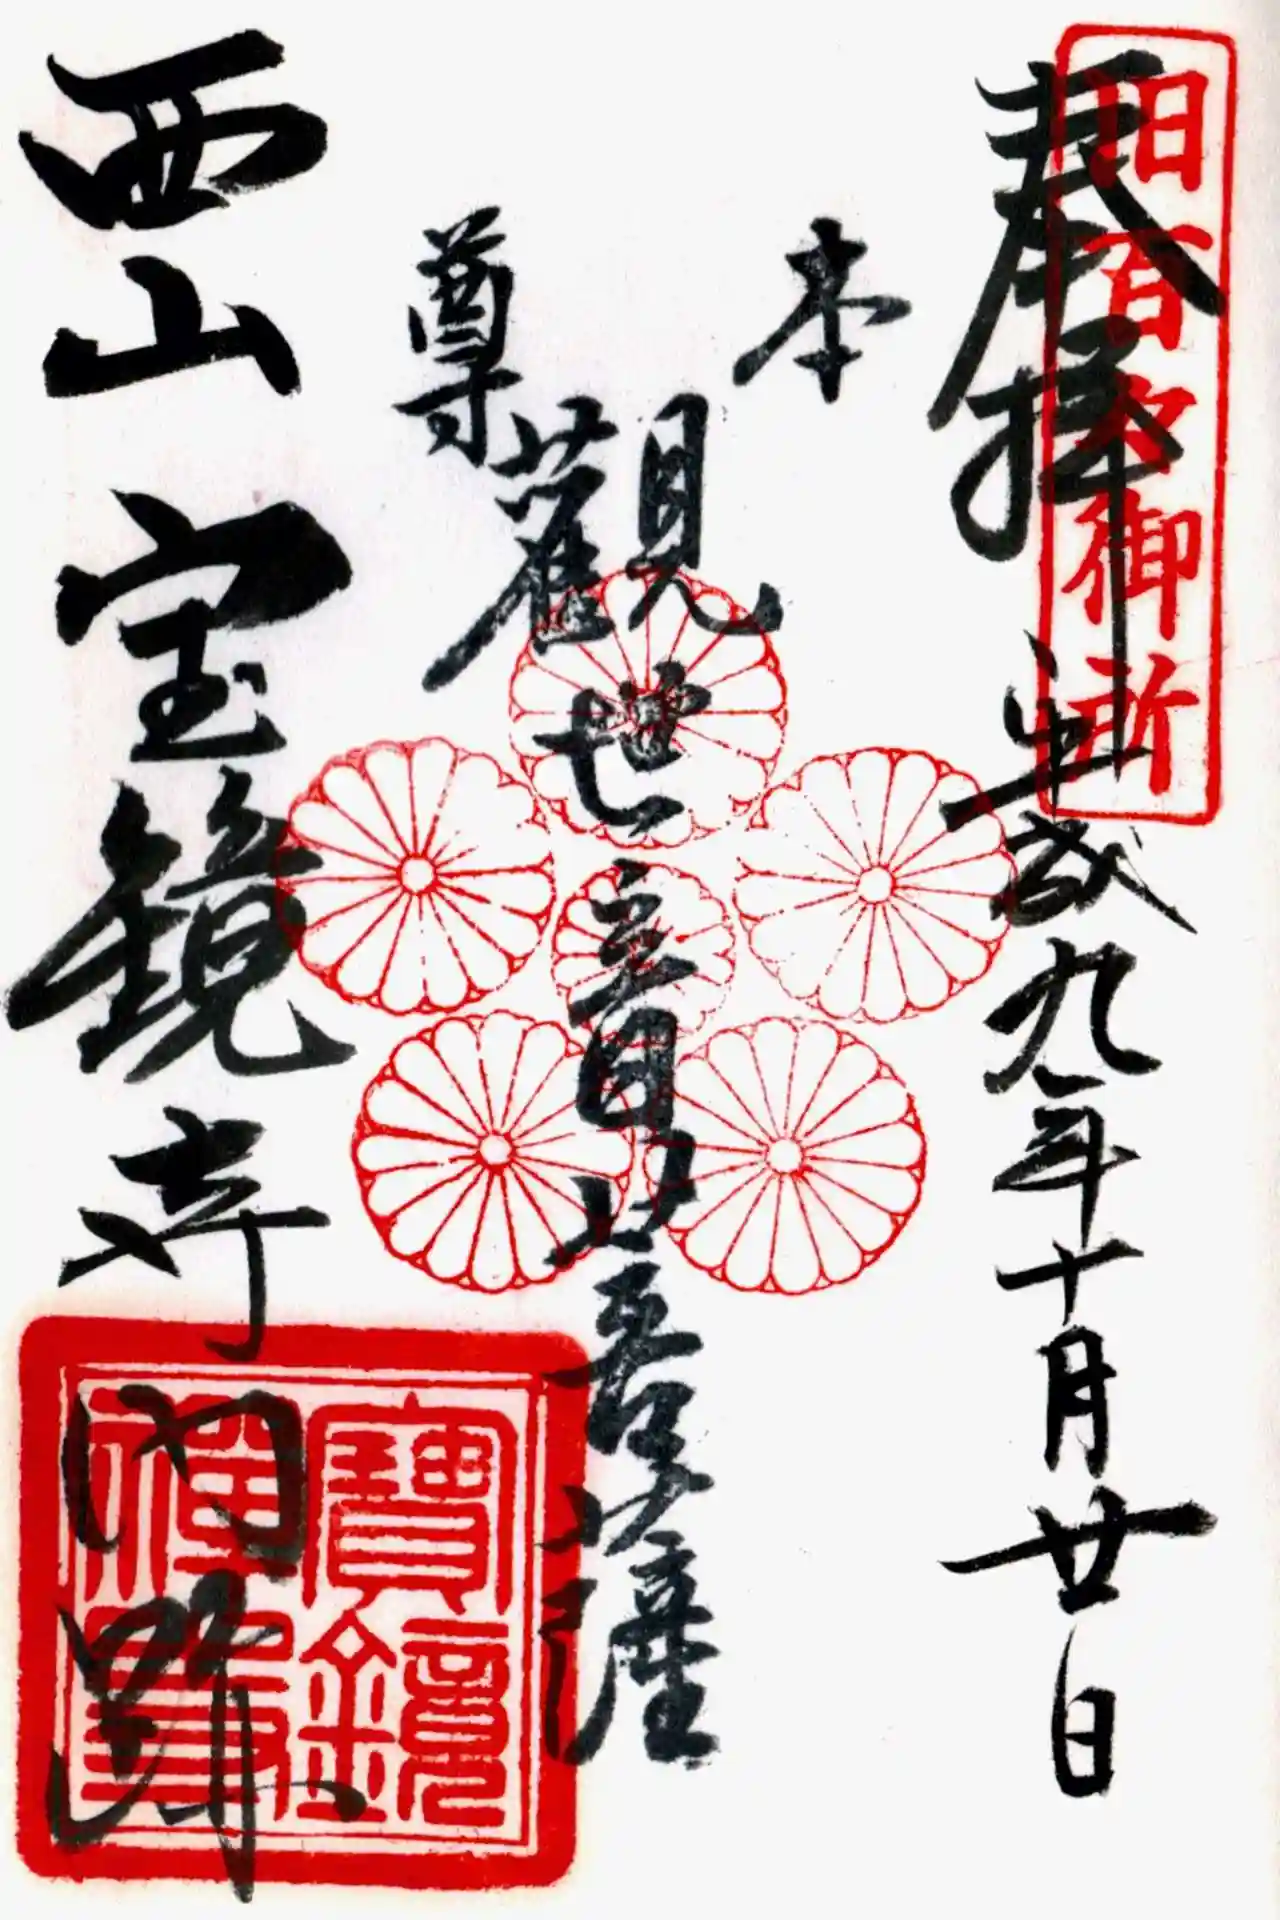 旧百々御所
奉拝 平成九年十月廿日
本尊
觀世音菩薩
西山宝鏡寺門跡
寶鏡禅寺